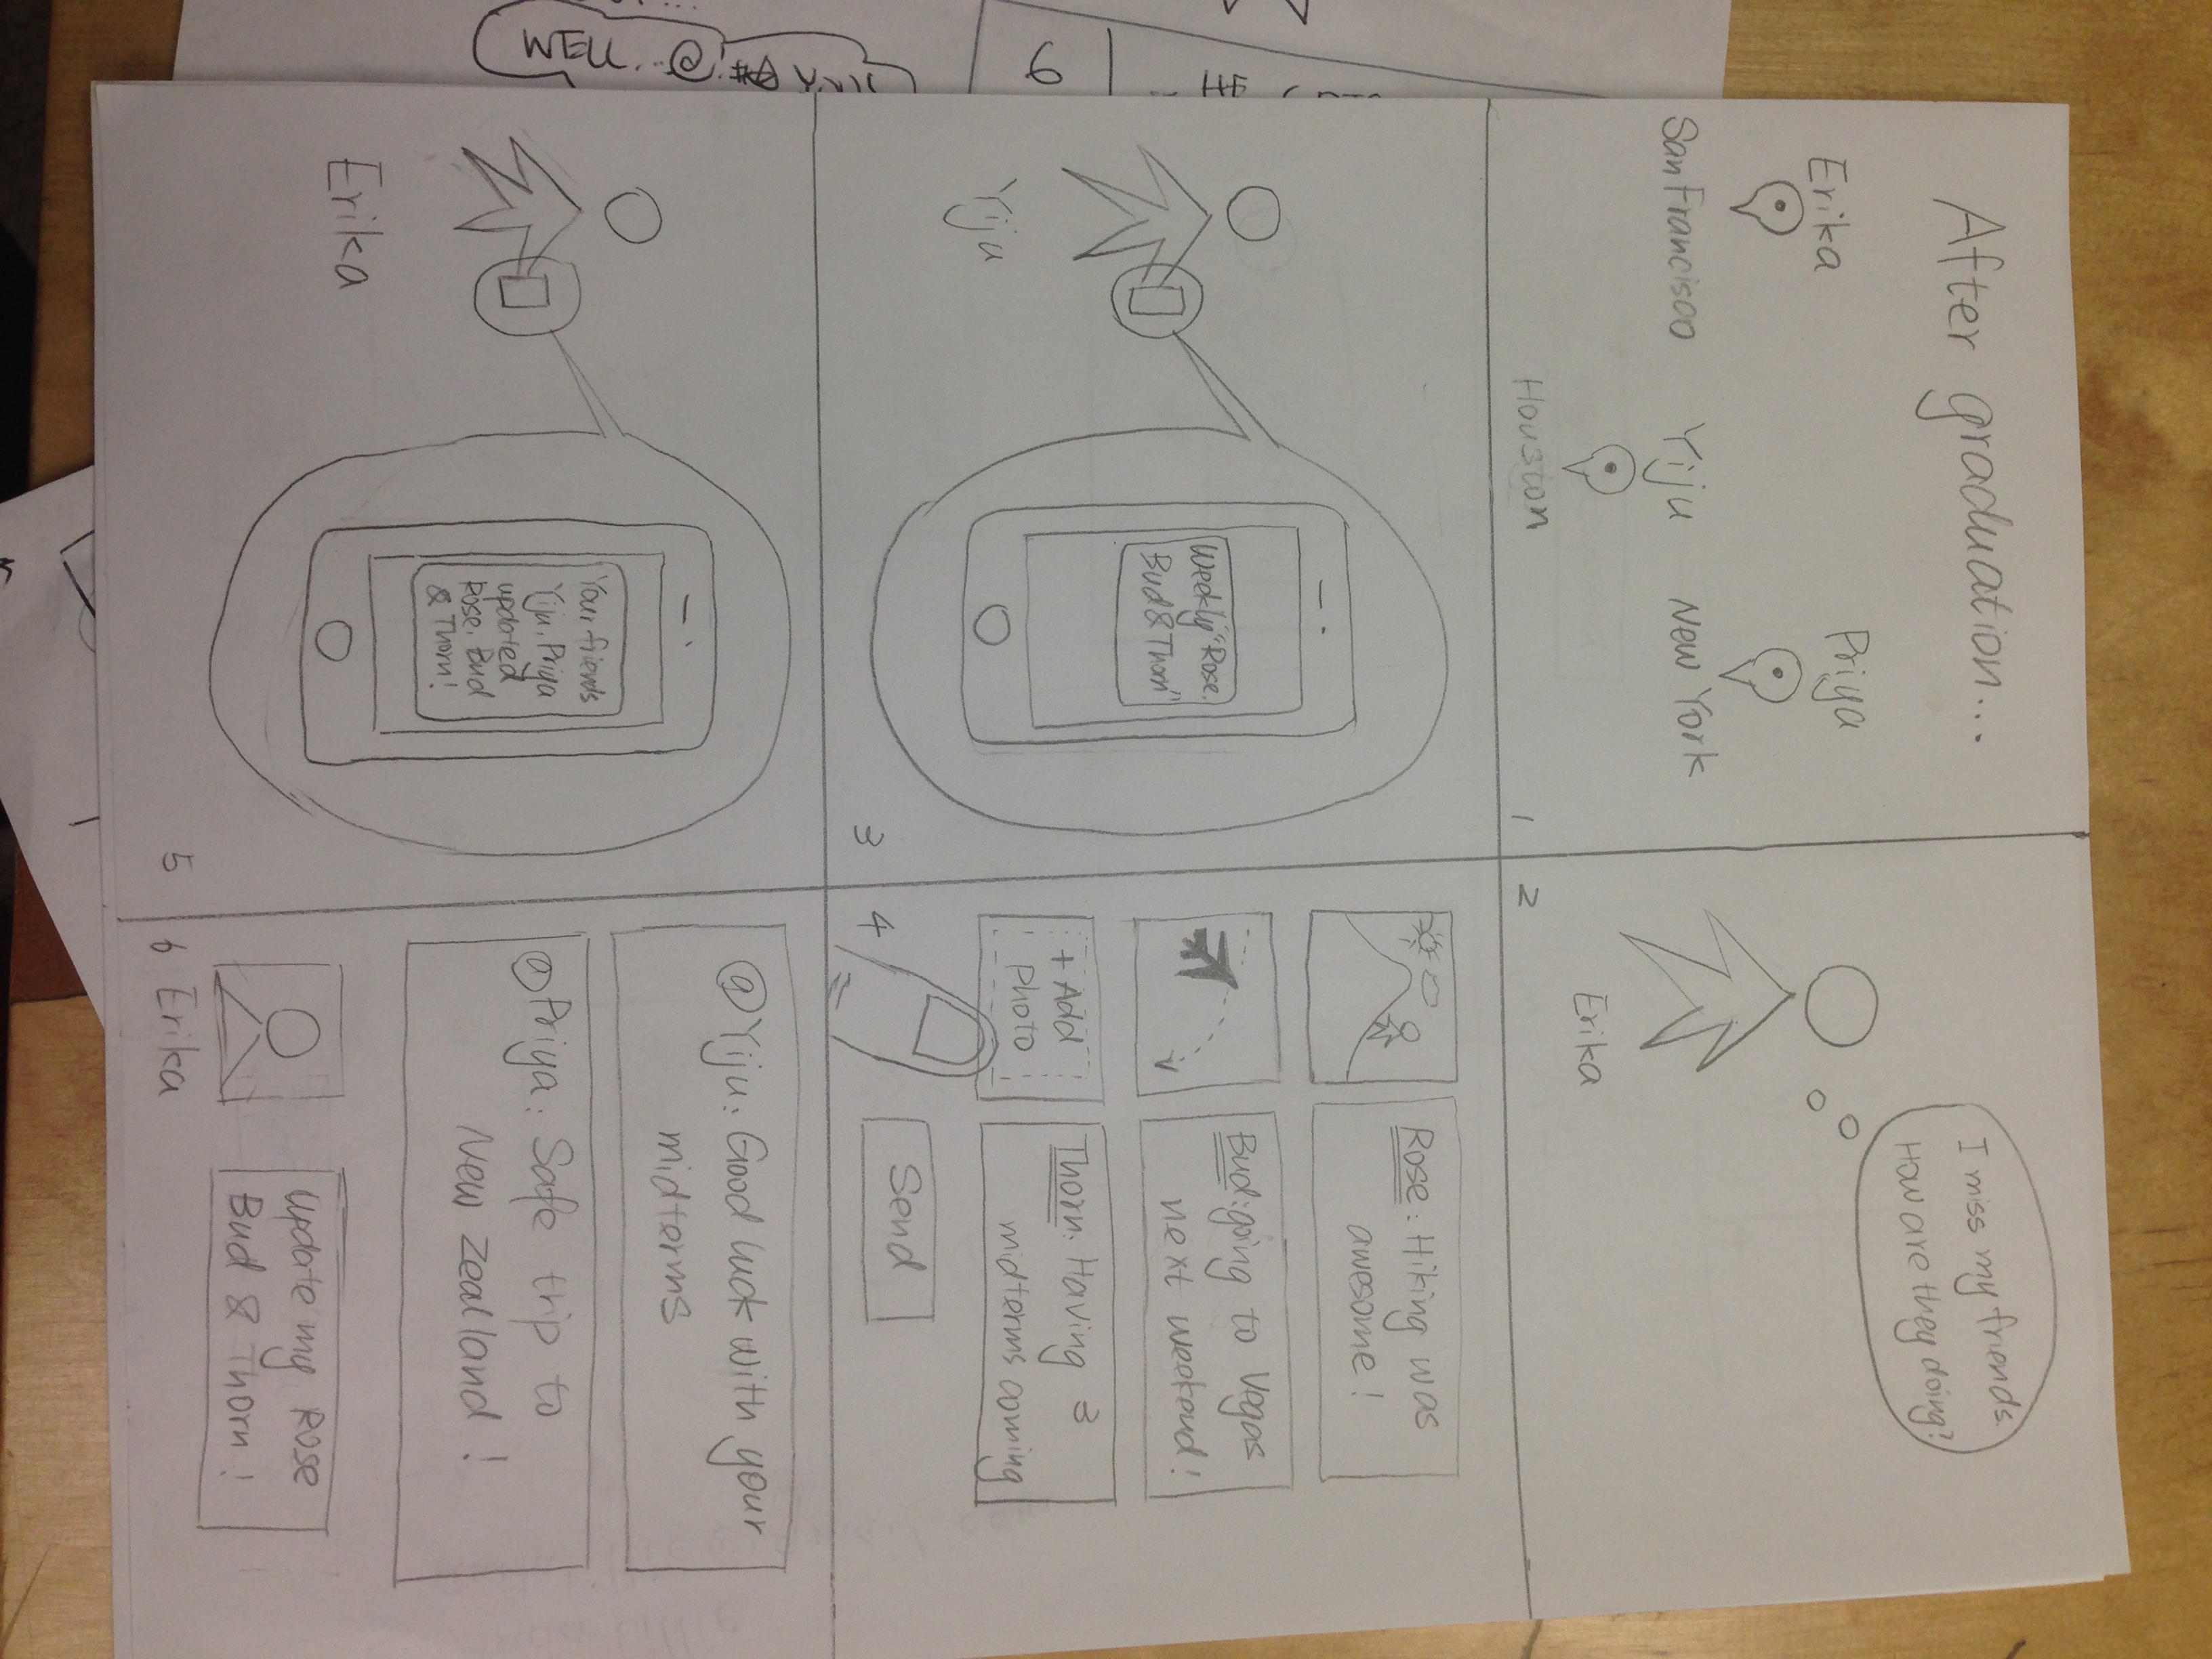 WELL...@
6
After graduation...
Erika
San Francisco
Yiju
Houston
Priya
New York
1
I miss my friends.
How are they doing?
Erika
2
Yiju
Weekly "Rose,
Bud & Thorn"
3
Rose: Hiking was
awesome!
Bud: going to Vegas
next weekend!
+ Add
Photo
Thorn: Having 3
midterms coming
Send
4
Erika
Your friends
Yiju, Priya
updated
Rose, Bud
& Thorn!
5
@Yiju: Good luck with your
midterms
@Priya: Safe trip to
New Zealland!
Update my Rose
Bud & Thorn!
6 Erika